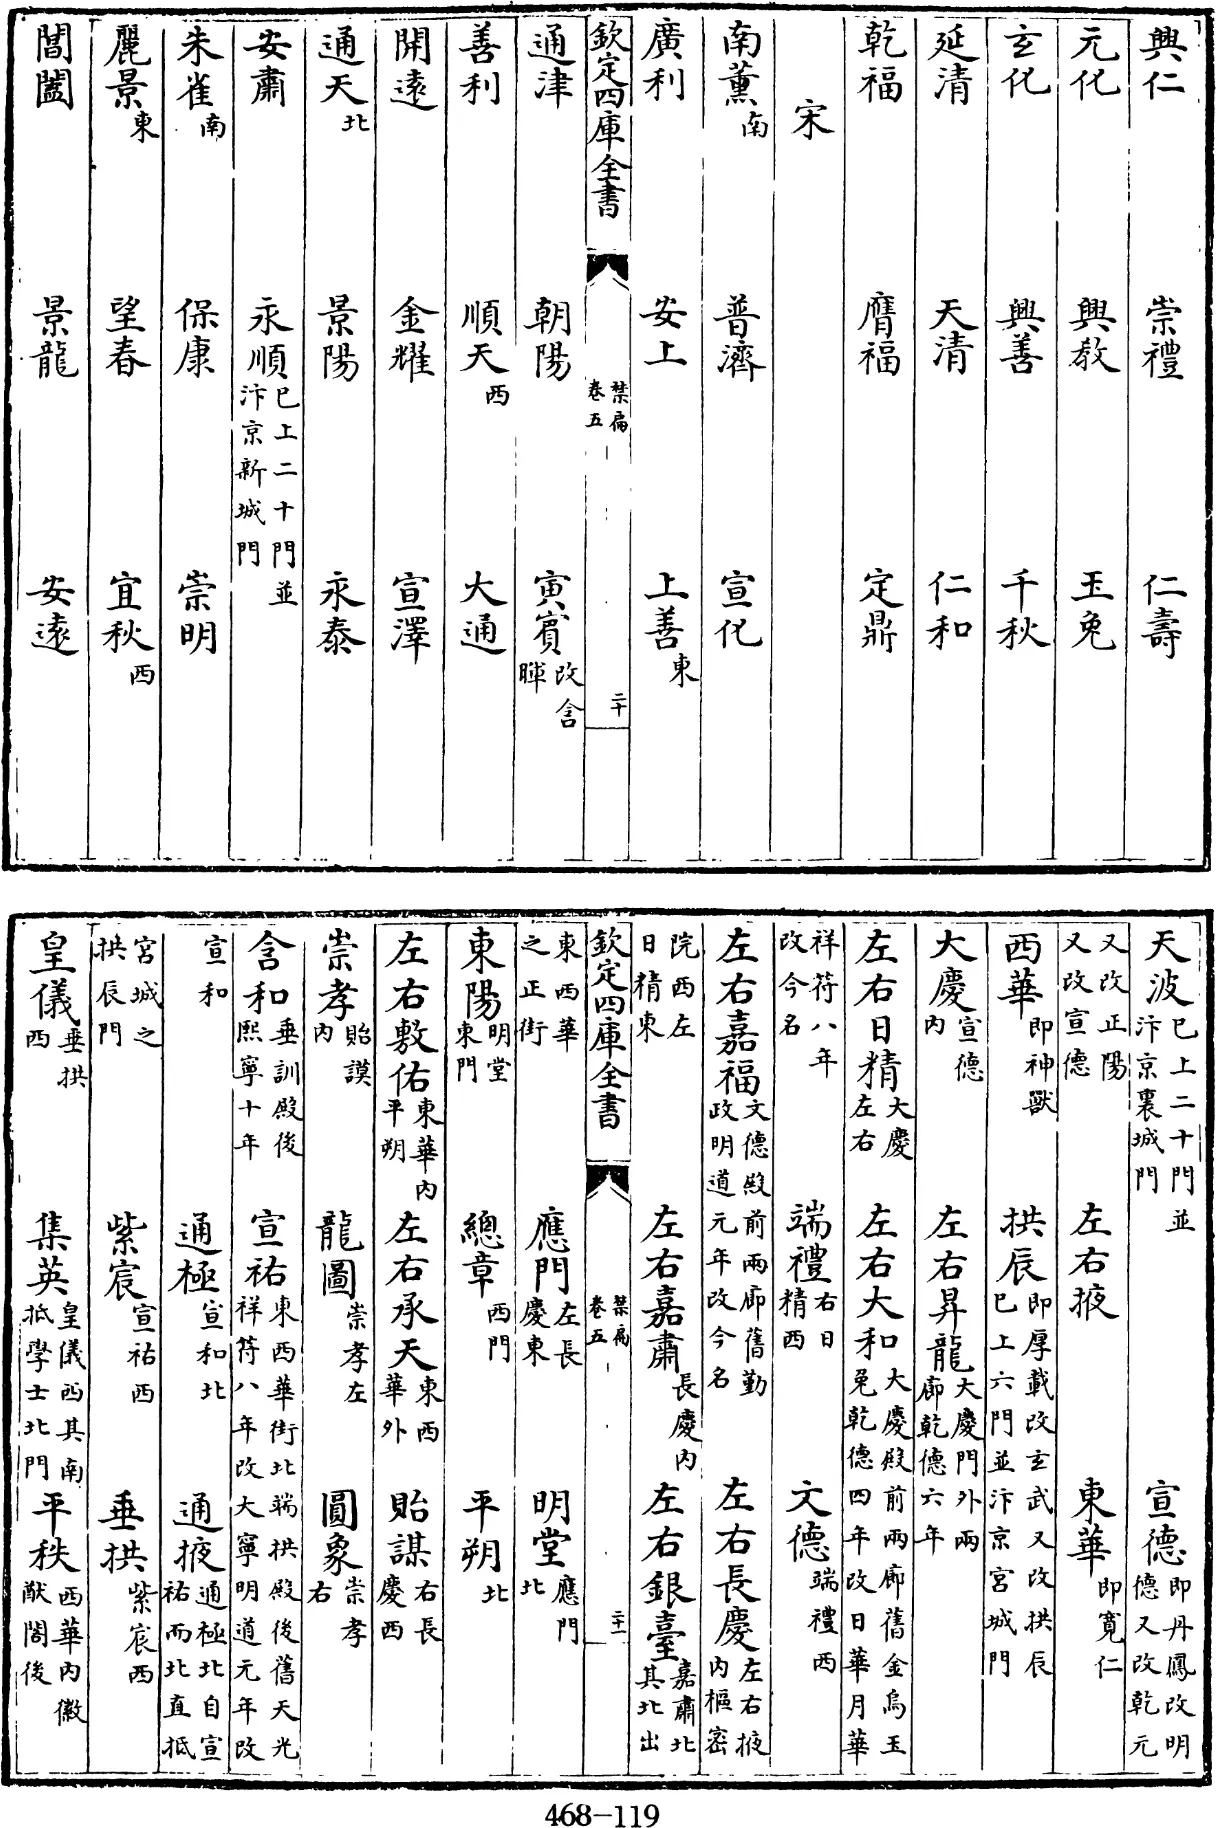 興仁 崇禮 仁壽
元化 興教 玉兔
玄化 興善 千秋
延清 天清 仁和
乾福 膺福 定鼎
宋
南薰南 普濟 宣化
廣利 安上 上善東
欽定四庫全書 禁扁卷五 二十
通津 朝陽 寅賓改含暉
善利 順天西 大通
開遠 金耀 宣澤
通天北 景陽 永泰
安肅 永順已上二十門並汴京新城門
朱雀南 保康 崇明
麗景東 望春 宜秋西
閶闔 景龍 安遠
天波已上二十門並汴京裏城門 宣德即丹鳳改明德又改乾元
又改正陽又改宣德 左右掖 東華即寛仁
西華即神獸 拱辰即厚載改玄武又改拱辰已上六門並汴京宮城門
大慶宣德内 左右昇龍大慶門外兩廊乾德六年
左右日精大慶左右 左右大和大慶殿前兩廊舊金烏玉兔乾德四年改日華月華
祥符八年改今名 端禮右日精西 文德端禮西
左右嘉福文德殿前兩廊舊勤政明道元年改今名 左右長慶左右掖内樞密
院西左日精東 左右嘉肅長慶内 左右銀臺嘉肅北其北出
欽定四庫全書 禁扁卷五 二十一
東西華之正街 應門左長慶東 明堂應門北
東陽明堂東門 總章西門 平朔北
左右敷佑東華内平朔 左右承天東西華外 貽謀右長慶西
崇孝貽謨内 龍圖崇孝左 圓象崇孝右
含和垂訓殿後熙寧十年 宣祐東西華街北祥符八年改 端拱殿後舊天光大寧明道元年改
宣和 通極宣和北 通掖通極北自宣祐而北直抵
宮城之拱辰門 紫宸宣祐西 垂拱紫宸西
皇儀垂拱西 集英皇儀西其南抵學士北門 平秩西華内徽猷閣後
468-119